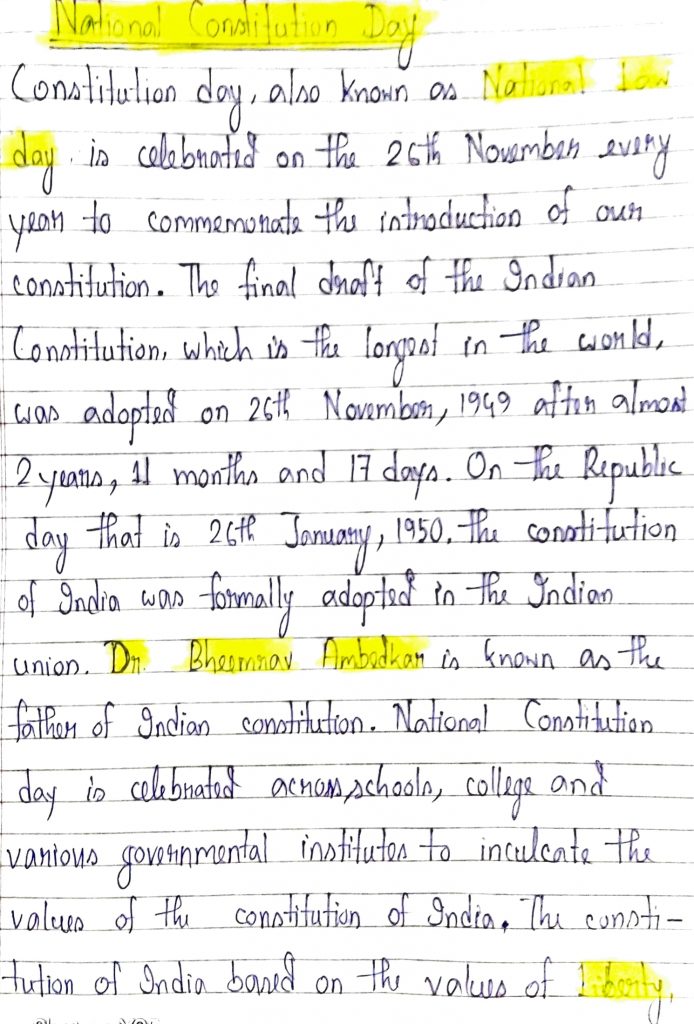 National Constitution Day
Constitution day, also known as National Law
day. is celebrated on the 26th November every
year to commemorate the introduction of our
constitution. The final draft of the Indian
Constitution, which is the longest in the world,
was adopted on 26th November, 1949 after almost
2 years, 11 months and 17 days. On the Republic
day that is 26th January, 1950. the constitution
of India was formally adopted in the Indian
union. Dr. Bheemrav Ambedkar is known as the
father of Indian constitution. National Constitution
day is celebrated across, schools, college and
various governmental institutes to inculcate the
values of the constitution of India. The consti-
tution of India based on the values of liberty,